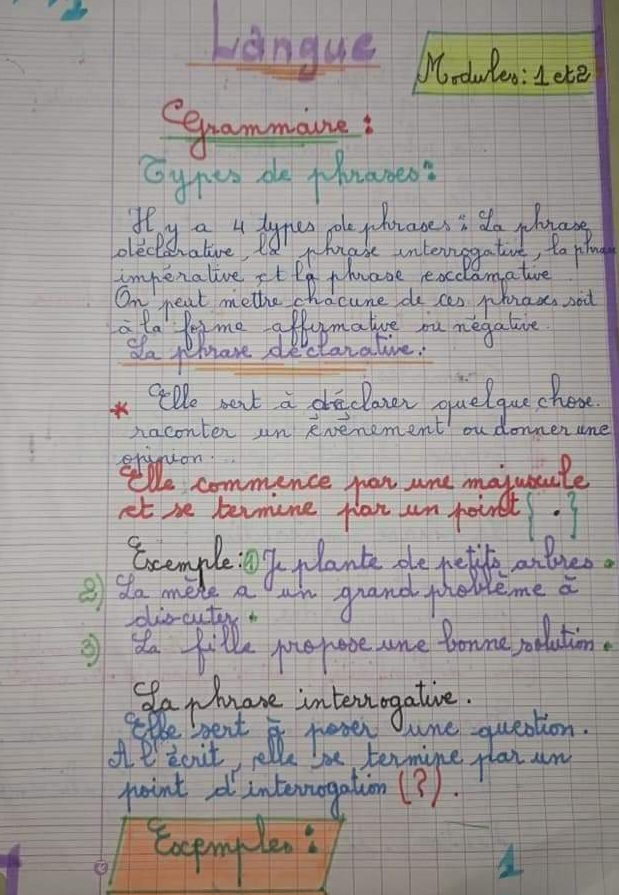 Langue
Modules: 1 et 2
Grammaire :
Types de phrases :
Il y a 4 types de phrases : La phrase
déclarative, la phrase interrogative, la phrase
impérative et la phrase exclamative
On peut mettre chacune de ces phrases soit
à la forme affirmative ou négative.
La phrase déclarative :
* Elle sert à déclarer quelque chose.
raconter un évènement ou donner une
opinion...
Elle commence par une majuscule
et se termine par un point { . }
Exemple : 1 Je plante de petits arbres .
2) La mère a un grand problème à
discuter .
3) La fille propose une bonne solution .
La phrase interrogative .
Elle sert à poser une question .
A l'écrit, elle se termine par un
point d'interrogation (?) .
Exemples :
1